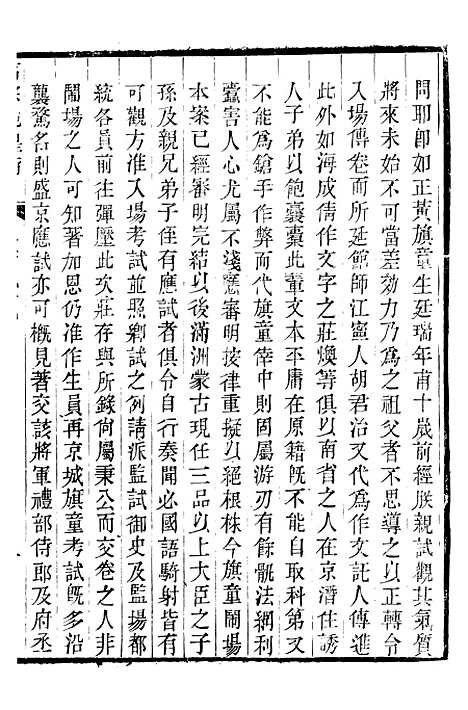 問耶卽如正黃旗童生延瑞年甫十歲前經朕親試觀其氣質
將來未始不可當差効力乃爲之祖父者不思導之以正轉令
入場傳卷而所延館師江寧人胡君治又代爲作文託人傳進
此外如海成倩作文字之莊煥等俱以南省之人在京潛住誘
人子弟以飽囊橐此輩文本平庸在原籍旣不能自取科第又
不能爲鎗手作弊而代旗童倖中則固屬游刃有餘骩法網利
蠧害人心尤屬不淺應審明按律重擬以絕根株今旗童鬧場
本案已經審明完結以後滿洲蒙古現任三品以上大臣之子
孫及親兄弟子侄有應試者俱令自行奏聞必國語騎射皆有
可觀方准入場考試並照鄕試之例請派監試御史及監場都
統各員前往彈壓此次莊存與所錄尙屬秉公而交卷之人非
鬧場之人可知著加恩仍准作生員再京城旗童考試旣多沿
襲騖名則盛京應試亦可槪見著交該將軍禮部侍郞及府丞